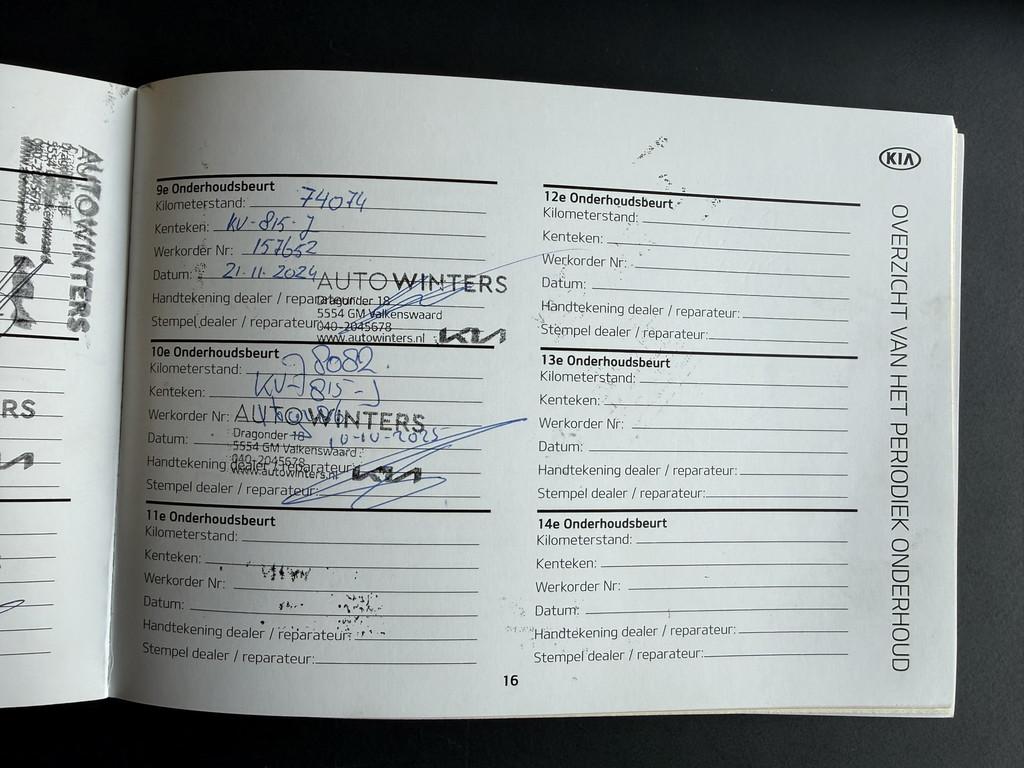 AUTO WINTERS
Dragonder 18
040-2045678
RS
9e Onderhoudsbeurt
Kilometerstand: 74074
Kenteken: KV-815-J
Werkorder Nr: 157652
Datum: 21-11-2024
Handtekening dealer / reparateur:
Stempel dealer / reparateur:
AUTO WINTERS
Dragonder 18
5554 GM Valkenswaard
040-2045678
www.autowinters.nl
KIA
10e Onderhoudsbeurt
Kilometerstand: 78082
Kenteken: KV-815-J
Werkorder Nr:
Datum: 10-10-2025
Handtekening dealer / reparateur:
Stempel dealer / reparateur:
AUTO WINTERS
Dragonder 18
5554 GM Valkenswaard
040-2045678
www.autowinters.nl
KIA
11e Onderhoudsbeurt
Kilometerstand:
Kenteken:
Werkorder Nr:
Datum:
Handtekening dealer / reparateur:
Stempel dealer / reparateur:
12e Onderhoudsbeurt
Kilometerstand:
Kenteken:
Werkorder Nr:
Datum:
Handtekening dealer / reparateur:
Stempel dealer / reparateur:
13e Onderhoudsbeurt
Kilometerstand:
Kenteken:
Werkorder Nr:
Datum:
Handtekening dealer / reparateur:
Stempel dealer / reparateur:
14e Onderhoudsbeurt
Kilometerstand:
Kenteken:
Werkorder Nr:
Datum:
Handtekening dealer / reparateur:
Stempel dealer / reparateur:
KIA
OVERZICHT VAN HET PERIODIEK ONDERHOUD
16